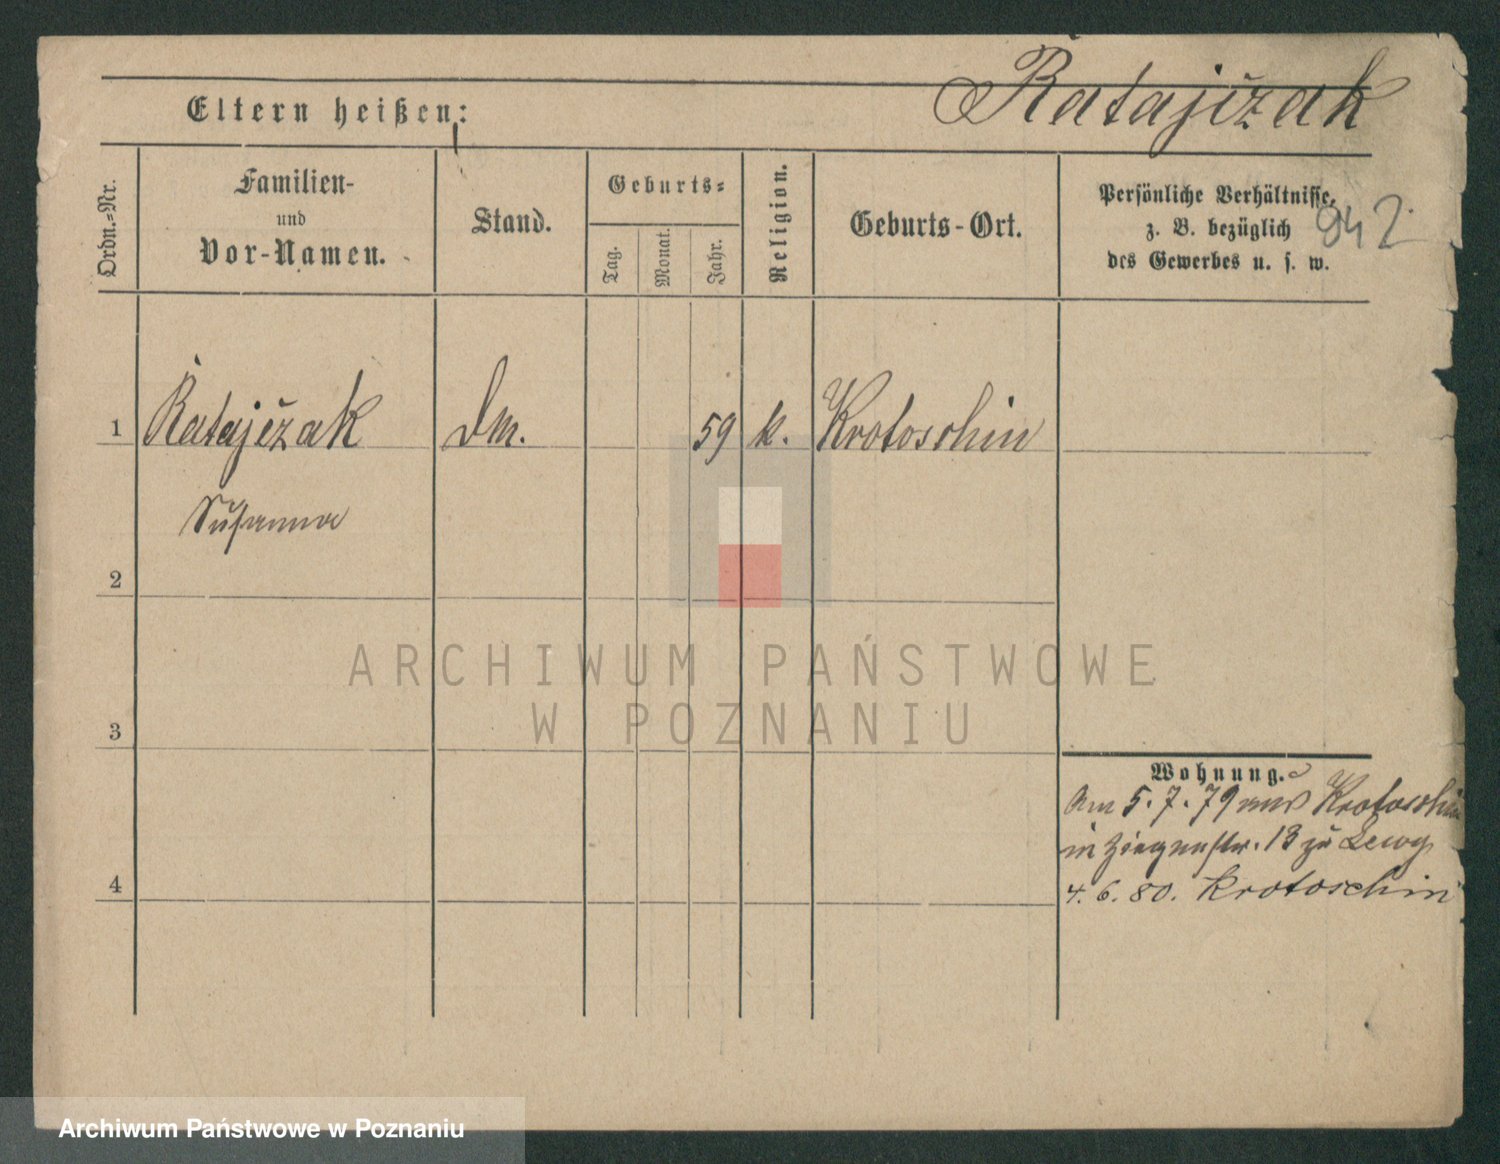 Ratajčzak
Eltern heißen:
Ordn.-Nr.
Familien-
und
Vor-Namen.
Stand.
Geburts-
Tag.
Monat.
Jahr.
Religion.
Geburts-Ort.
Persönliche Verhältnisse,
z. B. bezüglich
des Gewerbes u. s. w.
942
1 Ratajčzak Dm. 59 k. Krotoschin
Susanna
2
3
4
Wohnung.
Am 5.7.79 aus Krotoschin
in Ziegenstr. 13 zu
4.6.80. Krotoschin
ARCHIWUM PAŃSTWOWE
W POZNANIU
Archiwum Państwowe w Poznaniu